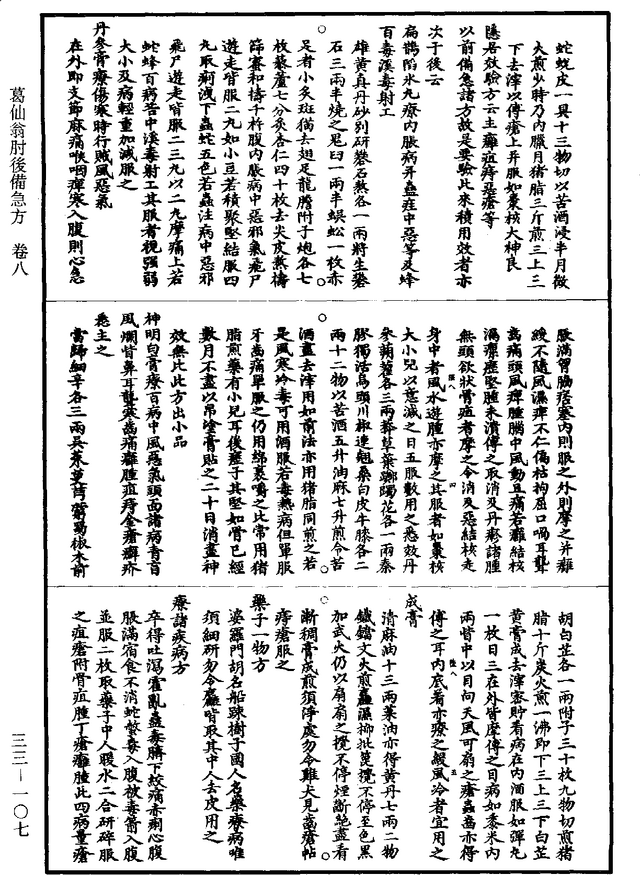 葛仙翁肘後備急方　卷八
三三—一〇七
蛇蛻皮一具十三物切以苦酒浸半月微
火煎少時乃內臘月猪脂三斤煎三上三
下去滓以傅瘡上并服如棗核大神良
隱居效驗方云主癰疽痔惡瘡等
以前備急諸方故是要驗此來積用效者亦
次于後云
扁鵲陷氷丸療內脹病并蠱疰中惡等及蜂
百毒溪毒射工
雄黃真丹砂別研礬石熬各一兩將生礬
石三兩半燒之鬼臼一兩半蜈蚣一枚赤
足者小炙斑猫去翅足龍膽附子炮各七
枚藜蘆七分炙杏仁四十枚去尖皮熬擣
篩蜜和擣千杵腹內脹病中惡邪氣飛尸
遊走皆服二丸如小豆若積聚堅結服四
丸取痢泄下蟲蛇五色若蟲注病中惡邪
飛尸遊走皆服二三丸以二丸摩痛上若
蛇蜂百病苦中溪毒射工其服者視強弱
大小及病輕重加減服之
丹參膏療傷寒時行賊風惡氣
在外即支節麻痛喉咽痺寒入腹則心急
脹滿胷脇痞塞內則服之外則摩之并癱
緩不隨風濕痺不仁偏枯拘屈口喎耳聾
齒痛頭風痺腫腦中風動且痛若癰結核
漏瘰癧堅腫未潰傅之取消及丹疹諸腫
無頭欲狀骨疽者摩之令消及惡結核走
身中者風水遊腫亦摩之其服者如棗核
大小兒以意減之日五服數用之悉效丹
參蒴藋各三兩莽草葉躑躅花各一兩秦
膠獨活烏頭川椒連翹桑白皮牛膝各二
兩十二物以苦酒五升油麻七升煎令苦
酒盡去滓用如前法亦用猪脂同煎之若
是風寒冷毒可用酒服若毒熱病但單服
牙齒痛單服之仍用綿裹嚼之比常用猪
脂煎藥有小兒耳後癧子其堅如骨已經
數月不盡以帛塗膏貼之二十日消盡神
效無比此方出小品
神明白膏療百病中風惡氣頭面諸病青盲
風爛眥鼻耳聾寒齒痛癰腫疽痔金瘡癬疥
悉主之
當歸細辛各三兩吳茱萸芎藭蜀椒朮前
胡白芷各一兩附子三十枚九物切煎猪
脂十斤炭火煎一沸即下三上三下白芷
黃膏成去滓密貯看病在內酒服如彈丸
一枚日三在外皆摩傅之目病如黍米內
兩眥中以目向天風可扇之瘡蟲齒亦得
傅之耳內底著亦療之緩風冷者宜用之
成膏
清麻油十三兩菜油亦得黃丹七兩二物
鐵鐺文火煎麤濕柳批篦攪不停至色黑
加武火仍以扇扇之攪不停煙斷絕盡看
漸稠膏成煎須淨處勿令雞犬見齒瘡帖
痔瘡服之
藥子一物方
婆羅門胡名船踈樹子國人名藥療病唯
須細研勿令麤皆取其中人去皮用之
療諸疾病方
卒得吐瀉霍亂蠱毒臍下絞痛赤痢心腹
脹滿宿食不消蛇螫毒入腹被毒箭入腹
並服二枚取藥子中人暖水二合研碎服
之疽瘡附骨疽腫丁瘡癰腫此四病量瘡